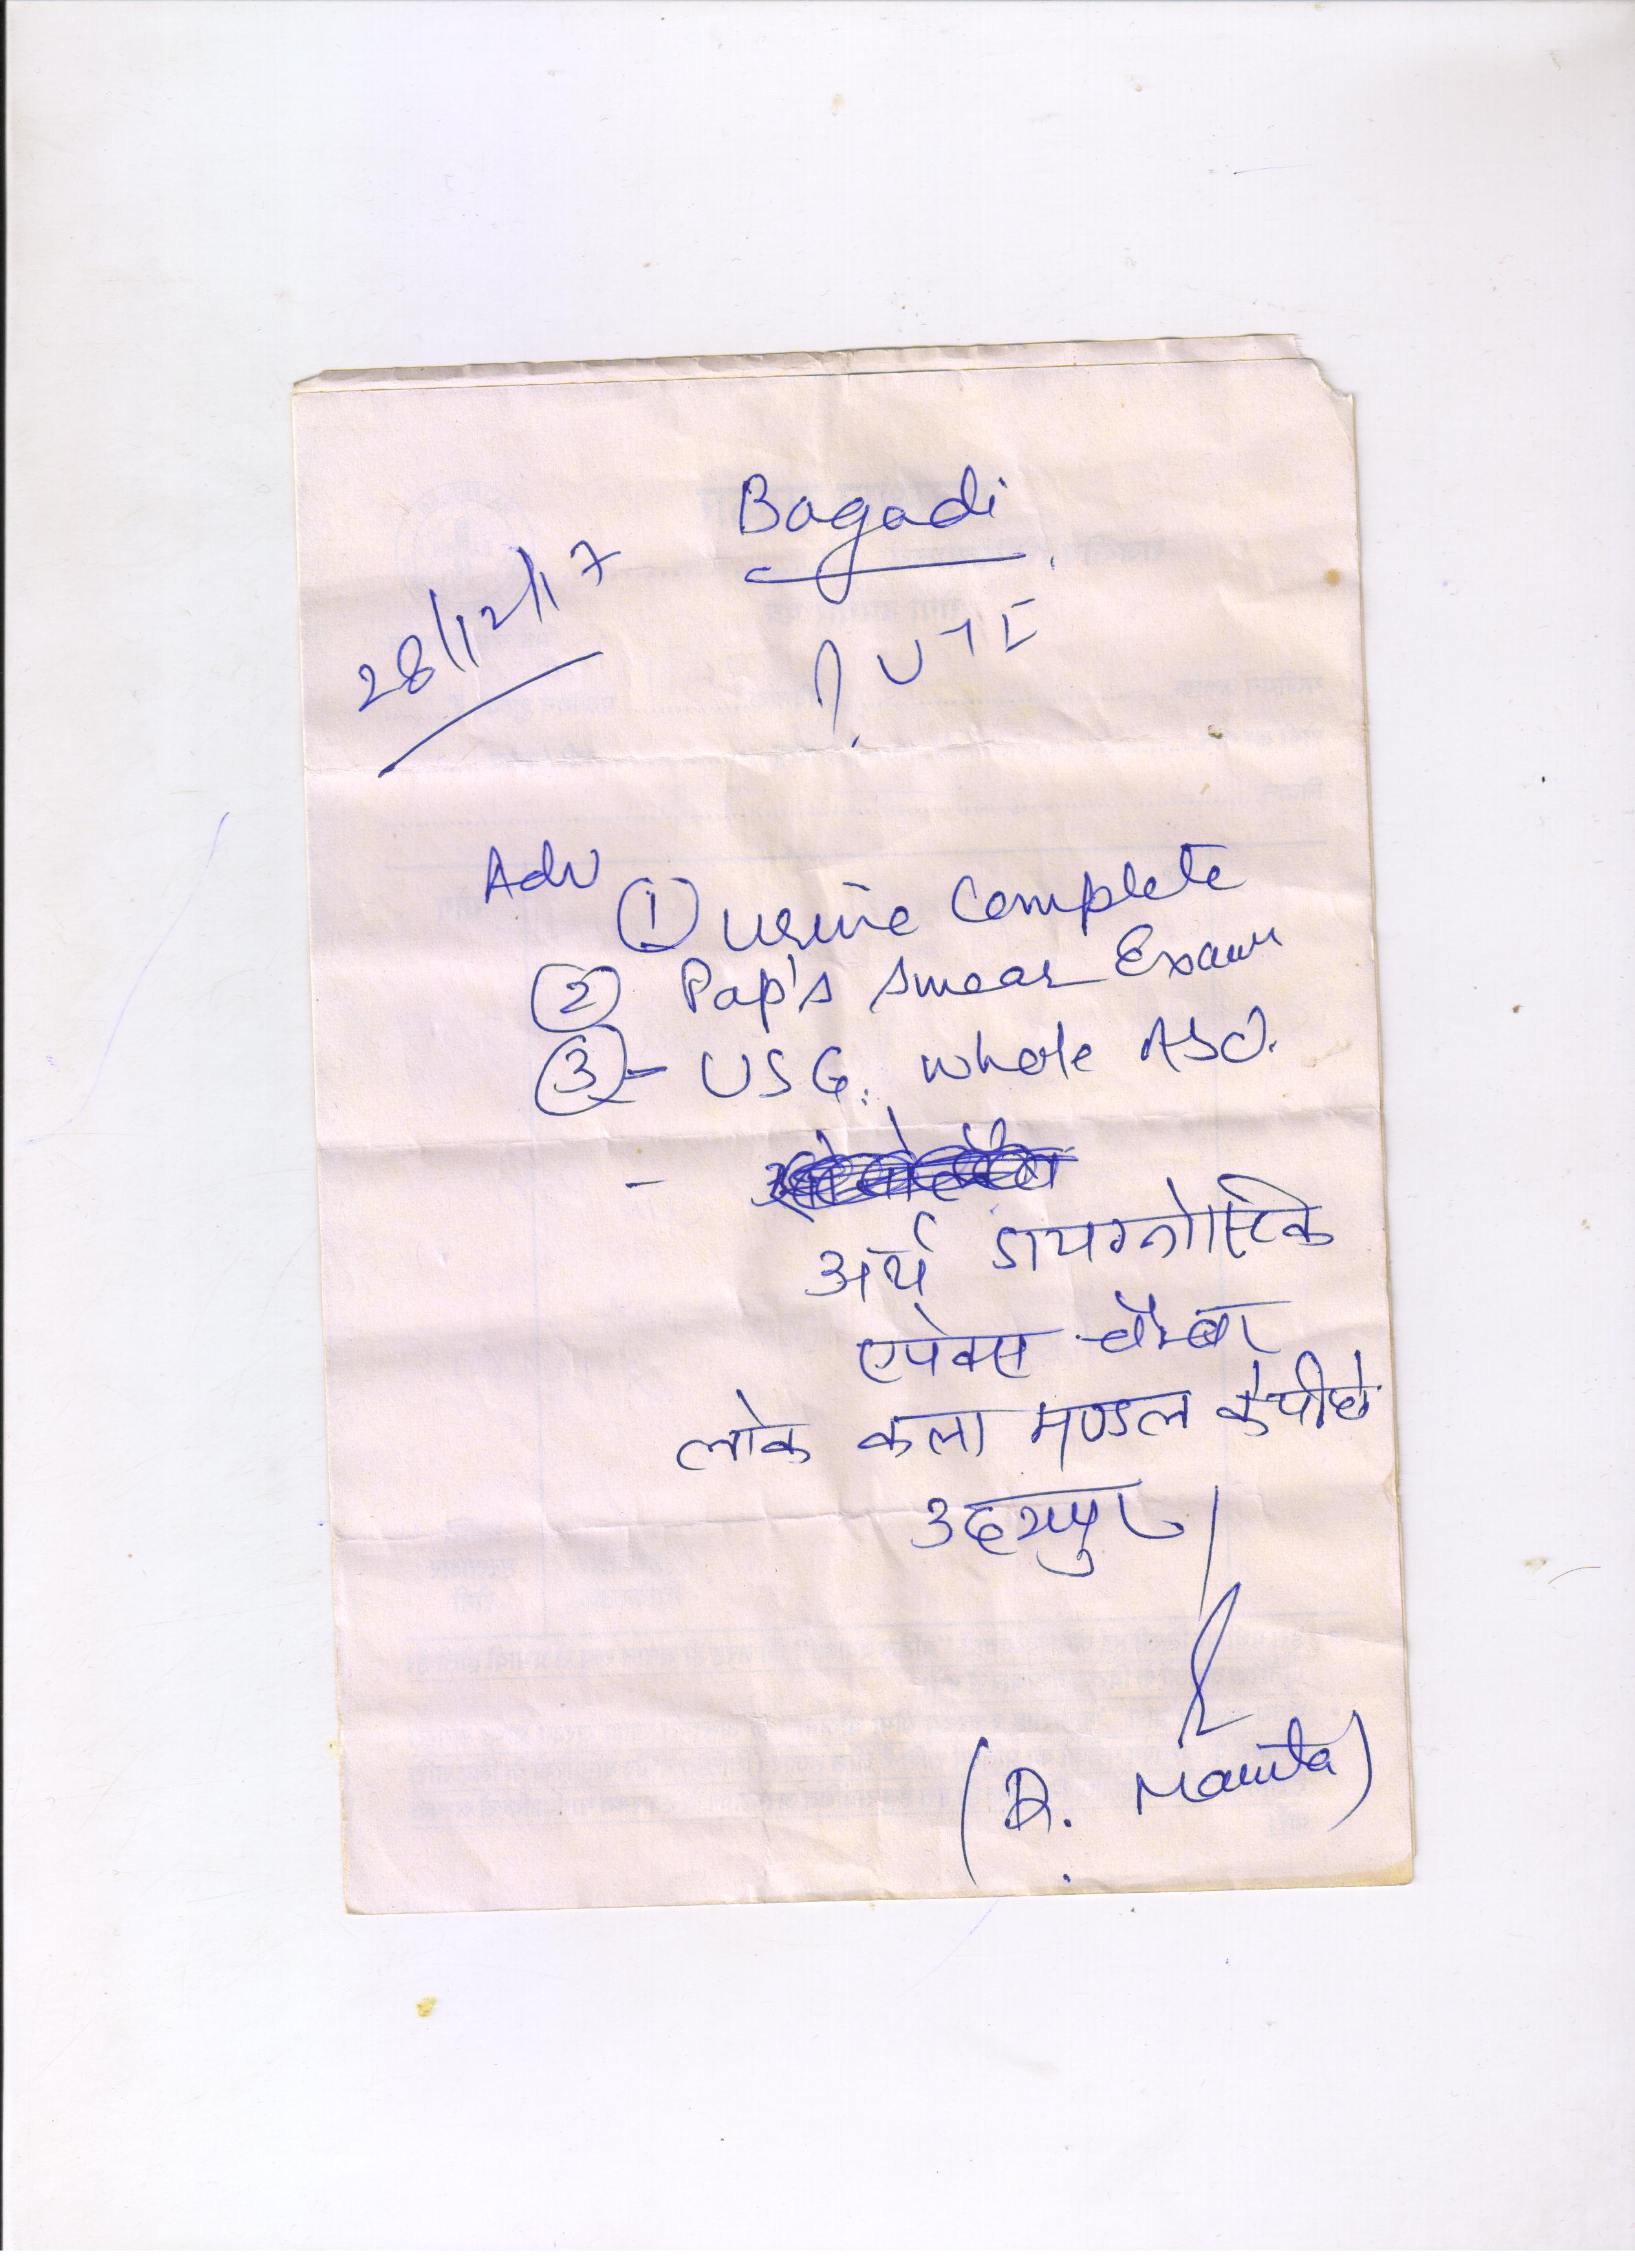 Bagadi
28/12/17
? UTI
Adv
① Urine Complete
② Pap's smear Exam
③ - USG. whole Abd.
अर्थ डायग्नोस्टिक
एपेक्स चैम्बर
लोक कला मण्डल के पीछे
उदयपुर
(Dr. Mamta)